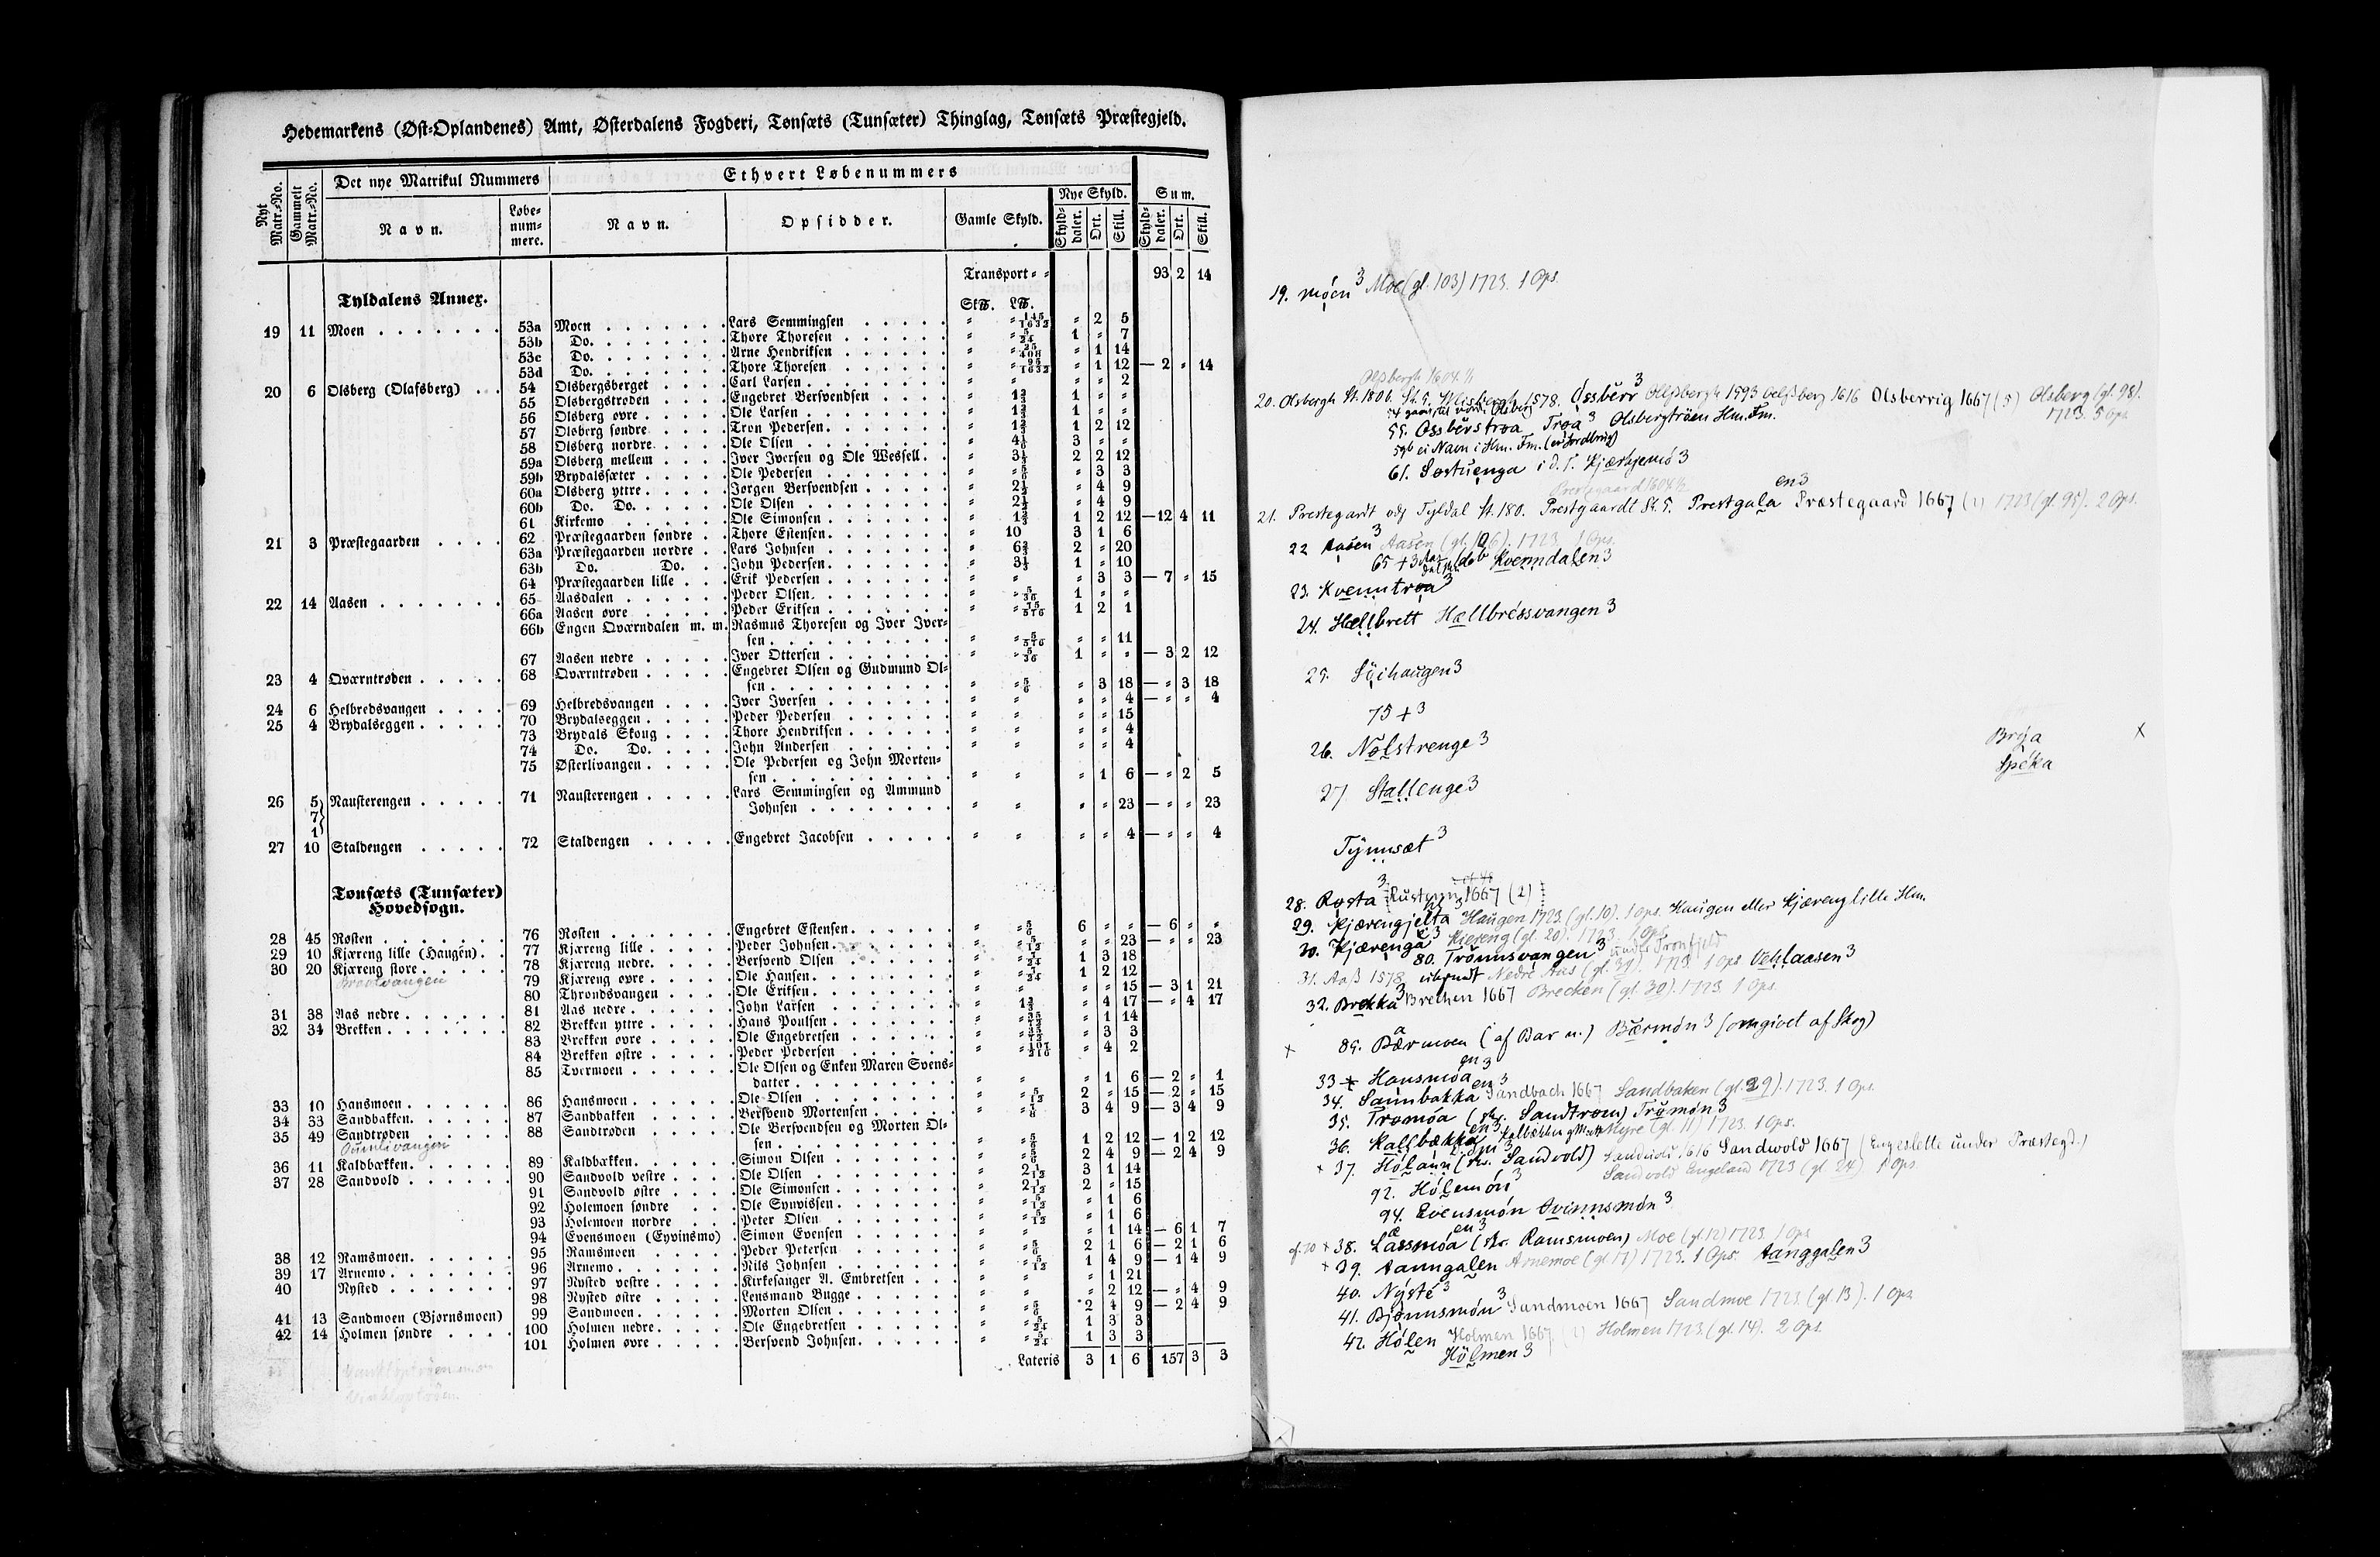 Hedemarkens (Øst-Oplandenes) Amt, Østerdalens Fogderi, Tønsæts (Tunsæter) Thinglag, Tønsæts Præstegjeld.
Nyt Matr.-No. Gammelt Matr.-No. Det nye Matrikul Nummers Ethvert Løbenummers
Navn. Løbe-nummere. Navn. Opsidder. Gamle Skyld. Nye Skyld. Sum.
Skylddaler. Ort. Skill. Skylddaler. Ort. Skill.
Transport 93 2 14
Tyldalens Annex.
19 11 Moen 53a Moen Lars Semmingsen " 2 5
53b Do. Thore Thoresen 1 " 7
53c Do. Arne Hendriksen " 1 14
53d Do. Thore Thoresen " 1 12 — 2 " 14
20 6 Olsberg (Olafsberg) 54 Olsbergsberget Carl Larsen " " 2
55 Olsbergstrøden Engebret Bersvendsen 1 " "
56 Olsberg øvre Ole Larsen 1 " "
57 Olsberg søndre Tron Pedersen 1 2 12
58 Olsberg nordre Ole Olsen 3 " "
59a Olsberg mellem Iver Iversen og Ole Wessell 2 2 12
59b Brydalssæter Ole Pedersen " 3 3
60a Olsberg yttre Jørgen Bersvendsen " 4 9
60b Do. Do. Ole Olsen " 4 9
61 Kirkemo Ole Simonsen 1 2 12 — 12 4 11
21 3 Præstegaarden 62 Præstegaarden søndre Thore Estensen 10 3 1 6
63a Præstegaarden nordre Lars Johnsen 2 " 20
63b Do. Do. John Pedersen 1 " 10
64 Præstegaarden lille Erik Pedersen " 3 3 — 7 " 15
22 14 Aasen 65 Aasdalen Peder Olsen 1 " "
66a Aasen øvre Peder Eriksen 1 2 1
66b Engen Qværndalen m. m. Rasmus Thoresen og Iver Iver-
sen " " 11
67 Aasen nedre Iver Ottersen 1 " " — 3 2 12
23 4 Qværntrøden 68 Qværntrøden Engebret Olsen og Gudmund Ol-
sen " 3 18 — " 3 18
24 6 Helbredsvangen 69 Helbredsvangen Iver Iversen " " 4 — " " 4
25 4 Brydalseggen 70 Brydalseggen Peder Pedersen " " 15
73 Brydals Skoug Thore Hendriksen " " 4
74 Do. Do. John Andersen " " 4
75 Østerlivangen Ole Pedersen og John Morten-
sen " 1 6 — " 2 5
26 5 7 1 Nausterengen 71 Nausterengen Lars Semmingsen og Ammund
Johnsen " " 23 — " " 23
27 10 Staldengen 72 Staldengen Engebret Jacobsen " " 4 — " " 4
Tønsæts (Tunsæter)
Hovedsogn.
28 45 Røsten 76 Røsten Engebret Estensen 6 " " — 6 " "
29 10 Kjæreng lille (Haugen) 77 Kjæreng lille Peder Johnsen " " 23 — " " 23
30 20 Kjæreng store 78 Kjæreng nedre Bersvend Olsen 1 3 18
79 Kjæreng øvre Ole Hansen 1 2 12
80 Throndsvangen Ole Eriksen " " 15 — 3 1 21
31 38 Aas nedre 81 Aas nedre John Larsen " 4 17 — " 4 17
32 34 Brekken 82 Brekken yttre Hans Poulsen " 1 14
83 Brekken øvre Ole Engebretsen " 3 3
84 Brekken østre Peder Pedersen " 4 2
85 Tvermoen Ole Olsen og Enken Maren Svens-
datter " 1 6 — 2 " 1
33 10 Hansmoen 86 Hansmoen Ole Olsen 2 " 15 — 2 " 15
34 33 Sandbakken 87 Sandbakken Bersvend Mortensen 3 4 9 — 3 4 9
35 49 Sandtrøden 88 Sandtrøden Ole Bersvendsen og Morten Ol-
sen 1 2 12 — 1 2 12
36 11 Kaldbækken 89 Kaldbækken Simon Olsen 2 4 9 — 2 4 9
37 28 Sandvold 90 Sandvold vestre Ole Olsen 3 1 14
91 Sandvold østre Ole Simonsen 2 " 15
92 Holemoen søndre Ole Synvissen " 1 6
93 Holemoen nordre Peter Olsen " 1 6
94 Evensmoen (Eyvinsmo) Simon Evensen " 1 14 — 6 1 7
38 12 Ramsmoen 95 Ramsmoen Peder Petersen 2 1 6 — 2 1 6
39 17 Arnemo 96 Arnemo Nils Johnsen 1 4 9 — 1 4 9
40 Nysted 97 Nysted vestre Kirkesanger A. Embretsen " 1 21
98 Nysted østre Lensmand Bugge " 2 12 — " 4 9
41 13 Sandmoen (Bjørnsmoen) 99 Sandmoen Morten Olsen 2 4 9 — 2 4 9
42 14 Holmen søndre 100 Holmen nedre Ole Engebretsen 1 3 3
101 Holmen øvre Bersvend Johnsen 1 3 3
Lateris 3 1 6 157 3 3
19. móen 3 Moe (gl. 103) 1723. 1 Ops.
20. Olsbergh St. 180b. 1578. Óssbérr 3 Ollsbergh 1593 Oelssberg 1616 Olsberrig 1667 (5) Olsberg (gl. 98).
1723. 5 Ops.
55. Ossbérstroa Trøa 3 Olsbergtrøen Hm. Fm.
59b ei Navn i Hm. Fm. (en Jordbrug)
61. Søstuenga i d. T. Kjærkjemó 3
21. Prestegardt vdj Tyldal St. 180. Prestgaardt St. 5. Prestgala en 3 Præstegaard 1667 (1) 1723 (gl. 95). 2 Ops.
22 Aasen 3 Aasen (gl. 106). 1723. 1 Ops.
65 + 3 Kvenndalen 3
23. Kvenntrøa 3
24. Hællbrett Hællbréssvangen 3
25. Söihaugen 3
75 + 3
26. Nølstrenge 3
Brya
Spéka
27. Stallenge 3
Tynnsæt 3
28. Røsta 3 Rustenn 1667 (2)
29. Kjærengjelta Haugen 1723. (gl. 10). 1 Ops. Haugen eller Kjæreng lille Hm.
30. Kjærenga 3 Kiereng (gl. 20). 1723. 1 Ops.
80. Trónnsvangen 3 under Tronfjeld
31. Aaß 1578 Nedre Aas (gl. 37). 1723. 1 Ops Vehlaasen 3
32. Brekka 3 Brechen 1667 Brecken (gl. 30). 1723. 1 Ops.
85. Bærmoen (af Bar n.) Bærmón 3 (omgivet af Skog)
33 + Hansmóa en 3
34. Sannbakka en 3 Sandbach 1667 Sandbaken (gl. 29). 1723. 1 Ops.
35. Tromóa (skr. Sandtrøen) Trømón 3
36. Kallbækka en 3 Myre (gl. 11) 1723. 1 Ops.
37. Hólann (skr. Sandvold) 1616 Sandwold 1667 (Engeslette under Præstegd.)
Sandvold Engeland 1723 (gl. 24). 1 Ops.
92. Hólemón 3
94. Evensmón Øvinnsmón 3
38. Lassmóa en 3 (skr. Ramsmoen) Moe (gl. 12) 1723. 1 Ops
39. Aanngalen Arnemoe (gl. 17) 1723. 1 Ops. Aanggalen 3
40. Nýste 3
41. Bjønnsmón 3 Sandmoen 1667 Sandmoe 1723. (gl. 13). 1 Ops
42. Hólen Holmen 1667 (1) Holmen 1723. (gl. 14). 2 Ops.
Hólmen 3